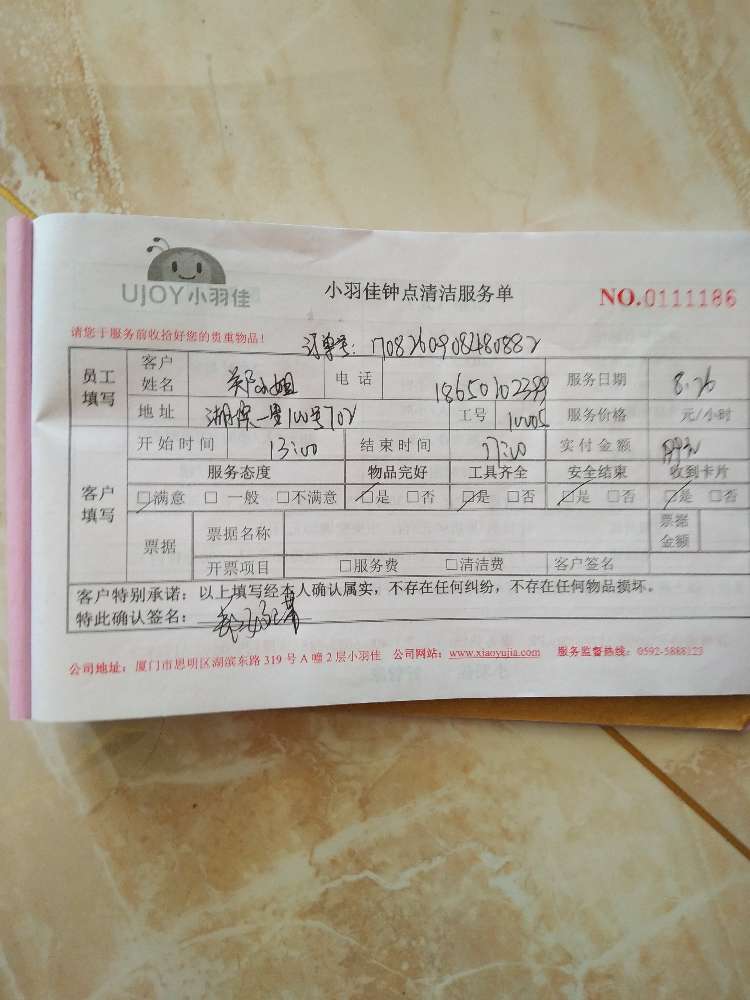 UJOY小羽佳
小羽佳钟点清洁服务单
NO.0111186
请您于服务前收拾好您的贵重物品!
订单号: 1708260908480882
员工填写 客户姓名 小姐 电话 18650102399 服务日期 8.26
地址 一里100号702 工号 10005 服务价格 元/小时
客户填写 开始时间 13:00 结束时间 17:00 实付金额
服务态度 物品完好 工具齐全 安全结束 收到卡片
□满意 □一般 □不满意 □是 □否 □是 □否 □是 □否 □是 □否
票据 票据名称 票据金额
开票项目 □服务费 □清洁费 客户签名
客户特别承诺: 以上填写经本人确认属实,不存在任何纠纷,不存在任何物品损坏。
特此确认签名:
公司地址: 厦门市思明区湖滨东路 319 号 A 幢 2 层小羽佳 公司网站: www.xiaoyujia.com 服务监督热线: 0592-5888123